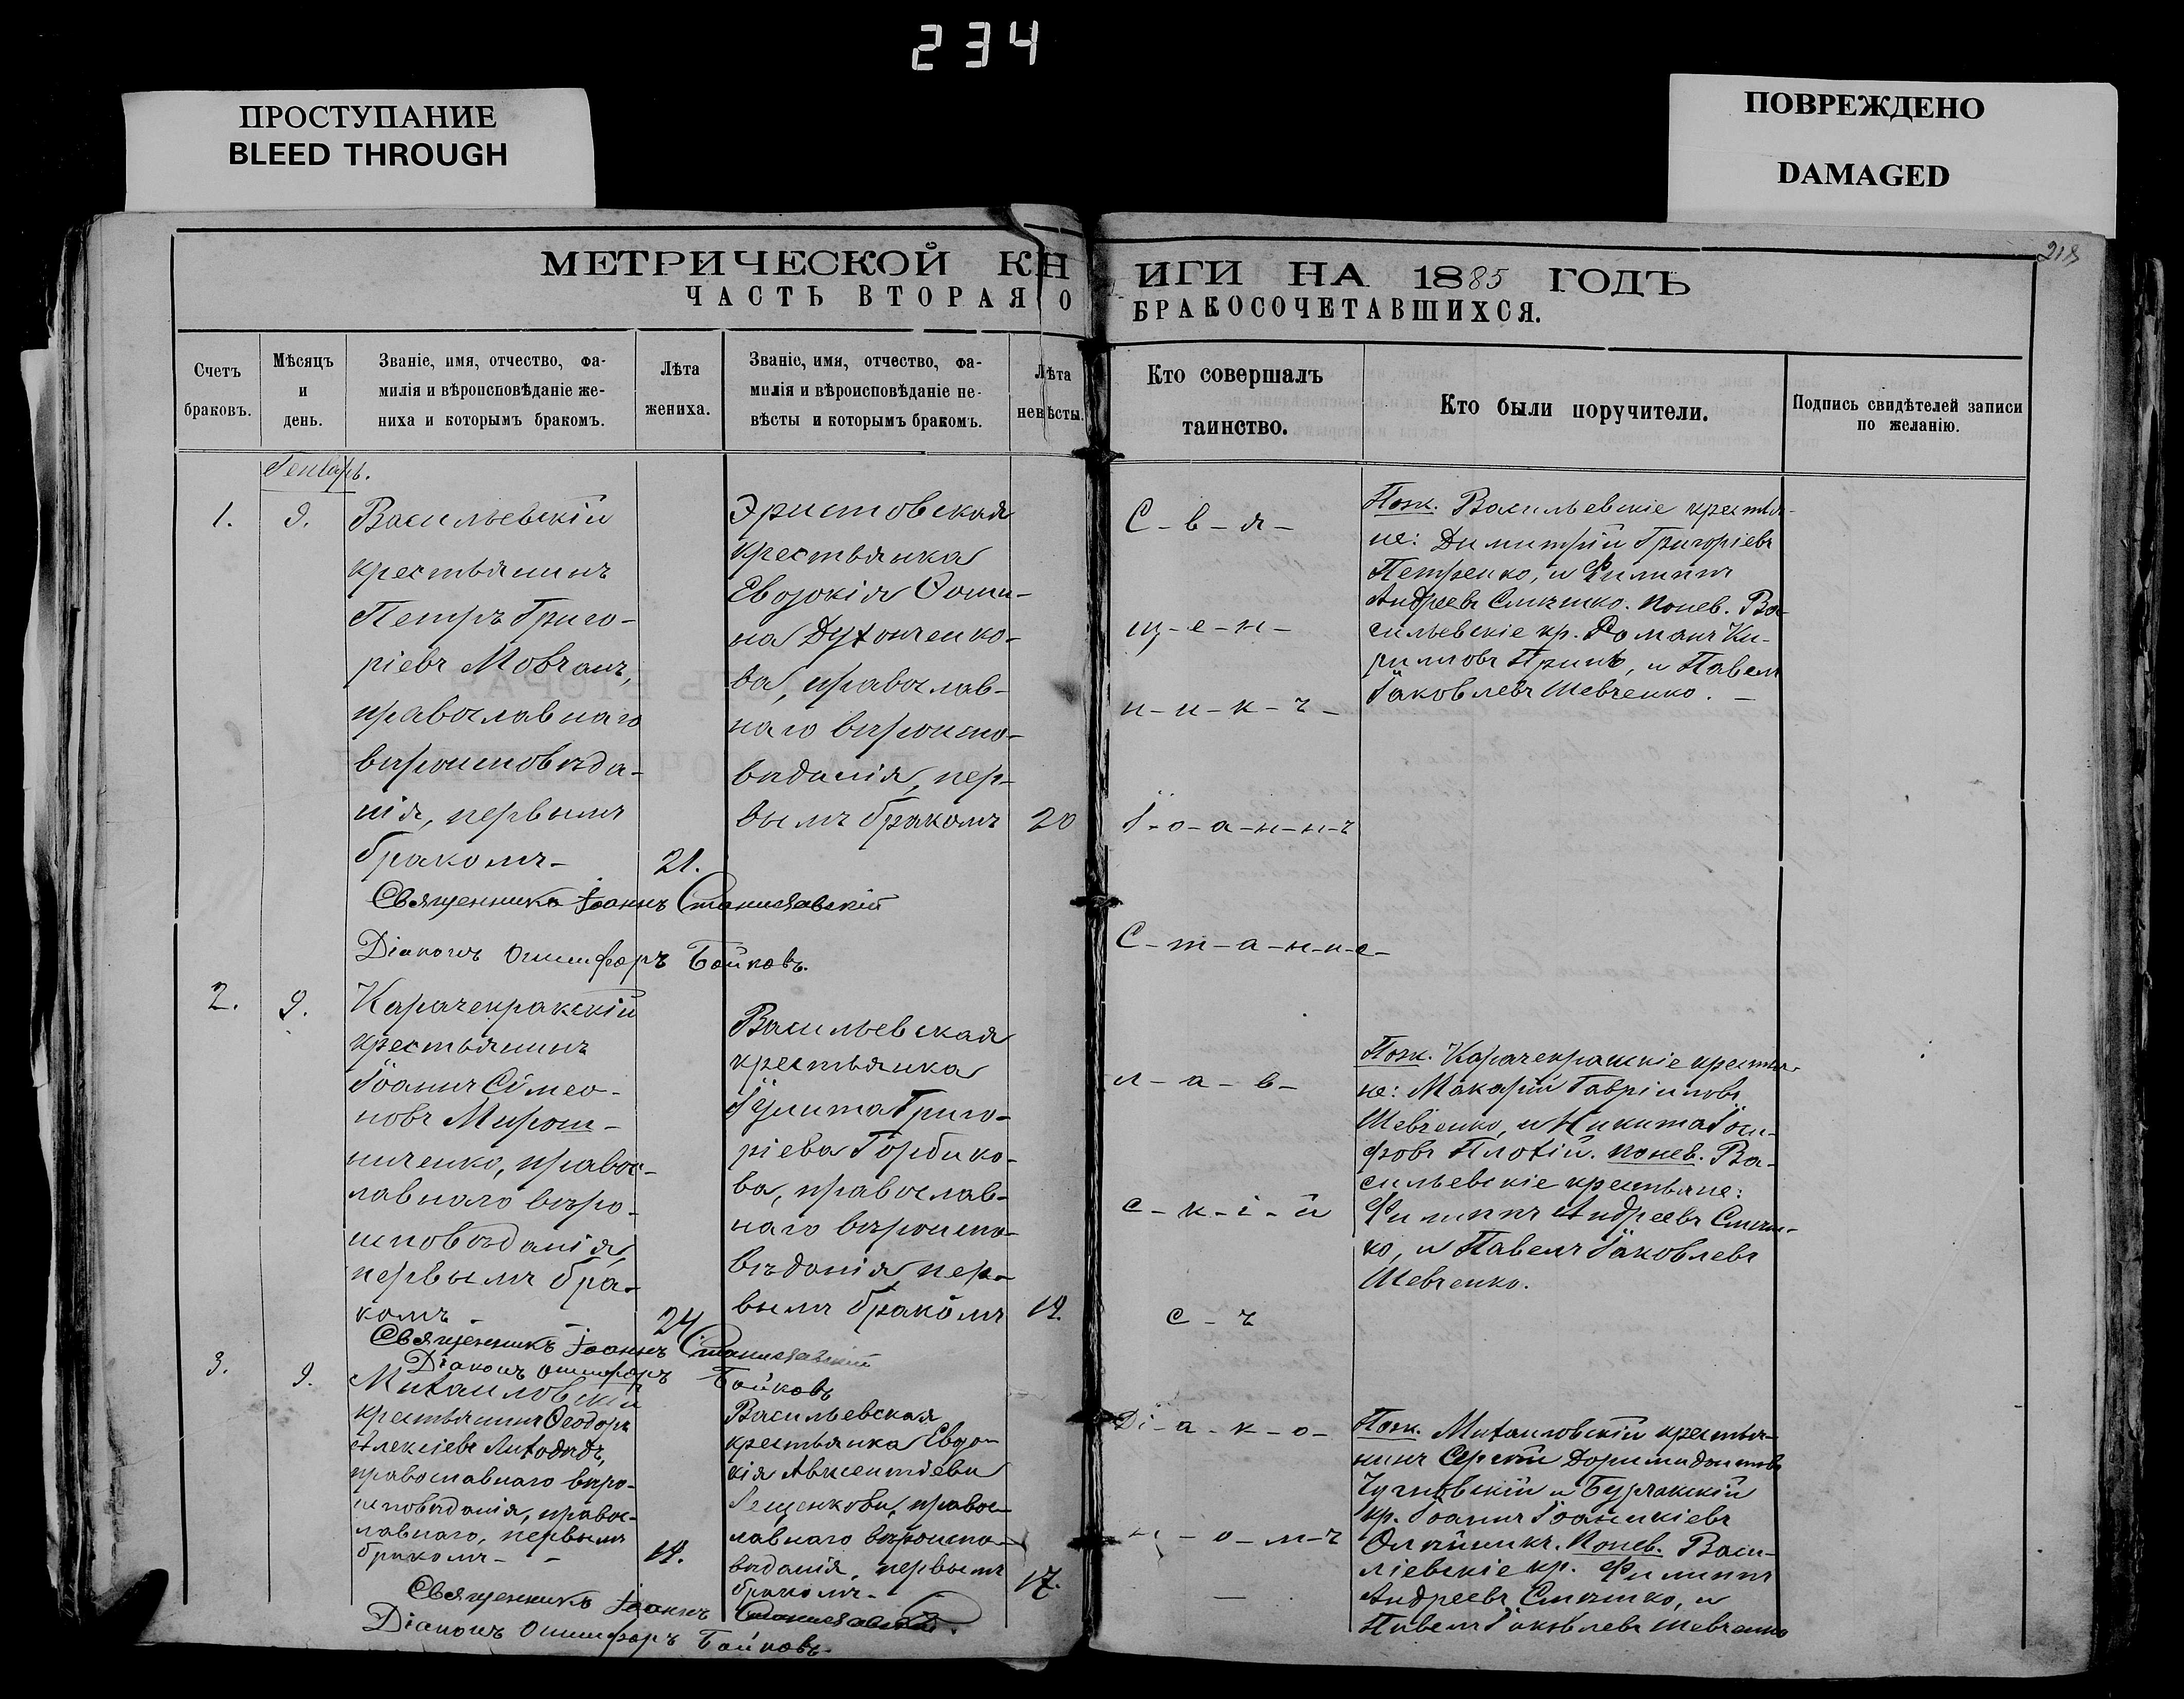 234
ПРОСТУПАНИЕ
BLEED THROUGH
ПОВРЕЖДЕНО
DAMAGED
218
МЕТРИЧЕСКОЙ КНИГИ НА 1885 ГОДЪ
ЧАСТЬ ВТОРАЯ О БРАКОСОЧЕТАВШИХСЯ.
Счетъ
браковъ.
Мѣсяцъ
и
день.
Званіе, имя, отчество, фа-
милія и вѣроисповѣданіе же-
ниха и которымъ бракомъ.
Лѣта
жениха.
Званіе, имя, отчество, фа-
милія и вѣроисповѣданіе не-
вѣсты и которымъ бракомъ.
Лѣта
невѣсты.
Кто совершалъ
таинство.
Кто были поручители.
Подпись свидѣтелей записи
по желанію.
Генварь.
1.
9.
Васильевскій
крестьянинъ
Петръ Григо-
ріевъ Мовчанъ,
православнаго
вѣроисповѣда-
нія, первымъ
бракомъ-
21.
Эристовская
крестьянка
Евдокія Ѳоми-
на Духонченко-
ва, православ-
наго вѣроиспо-
вѣданія, пер-
вымъ бракомъ
20
Пож. Васильевскіе крестья-
не: Димитрій Григоріевъ
Петренко, и Филиппъ
Андреевъ Слишко. Понев. Ва-
сильевскіе кр. Романъ Ки-
рилловъ, и Павелъ
Іаковлевъ Шевченко. -
Священникъ Іоаннъ Станиславскій
Діаконъ Онисифоръ Бойковъ.
2.
9.
Карачекракскій
крестьянинъ
Іоаннъ Сѵмео-
новъ Мирош-
ниченко, правос-
лавнаго вѣро-
исповѣданія,
первымъ бра-
комъ -
24
Васильевская
крестьянка
Іулита Григо-
ріева Горбико-
ва, православ-
наго вѣроиспо-
вѣданія, пер-
вымъ бракомъ
19.
Пож. Карачекракскіе крестья-
не: Макарій Гавріиловъ
Шевченко, и Никита Іоси-
фовъ Плохій. Понев. Ва-
сильевскіе крестьяне:
Филиппъ Андреевъ Слиш-
ко, и Павелъ Іаковлевъ
Шевченко.
Священникъ Іоаннъ Станиславскій
Діаконъ Онисифоръ Бойковъ
3.
9.
Михайловскій
крестьянинъ Ѳеодоръ
Алексіевъ Лиходѣдъ,
православнаго вѣро-
исповѣданія, правос-
лавнаго, первымъ
бракомъ- -
19.
Васильевская
крестьянка Евдо-
кія Авксентіева
правос-
лавнаго вѣроиспо-
вѣданія, первымъ
бракомъ-
17.
Пож. Михайловскій крестья-
нинъ Сергій Доримедонтовъ
и Бурлакскій
кр. Іоаннъ Іоанникіевъ
Олейникъ. Понев. Васи-
ліевскіе кр. Филиппъ
Андреевъ Слишко, и
Павелъ Іаковлевъ Шевченко
Священникъ Іоаннъ Станиславскій.
Діаконъ Онисифоръ Бойковъ.
С-в-я-
щ-е-н-
н-и-к-ъ-
І-о-а-н-н-ъ
С-т-а-н-и-с-
л-а-в-
с-к-і-й
с-ъ
Ді-а-к-о-
н-о-м-ъ
—